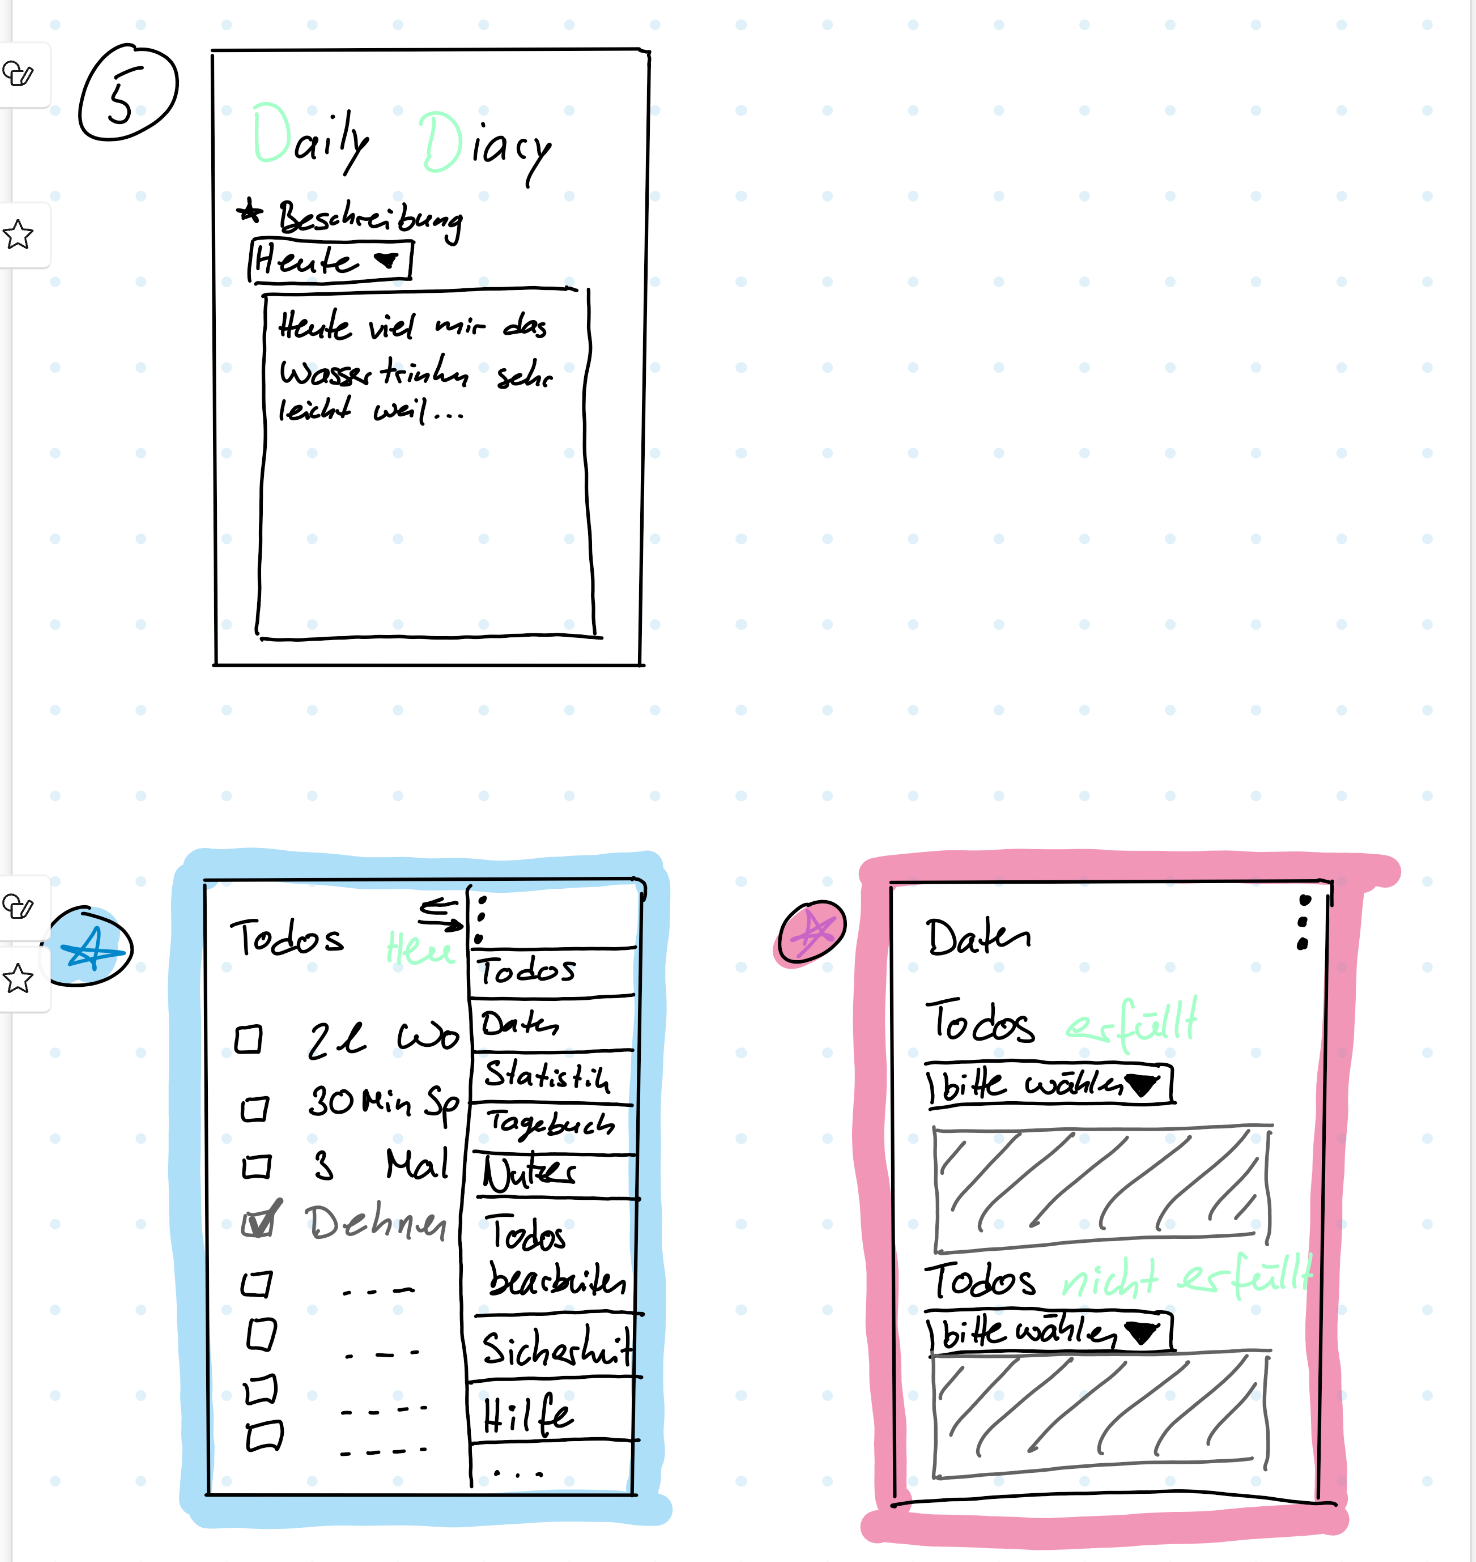 5
Daily Diary
Beschreibung
Heute
Heute viel mir das
Wassertrinken sehr
leicht weil...
Todos Heu
2l Wa
30 Min Sp
3 Mal
Dehnen
- - -
- - -
- - - -
- - - -
Todos
Daten
Statistik
Tagebuch
Nutzer
Todos
bearbeiten
Sicherheit
Hilfe
...
Daten
Todos erfüllt
bitte wählen
Todos nicht erfüllt
bitte wählen